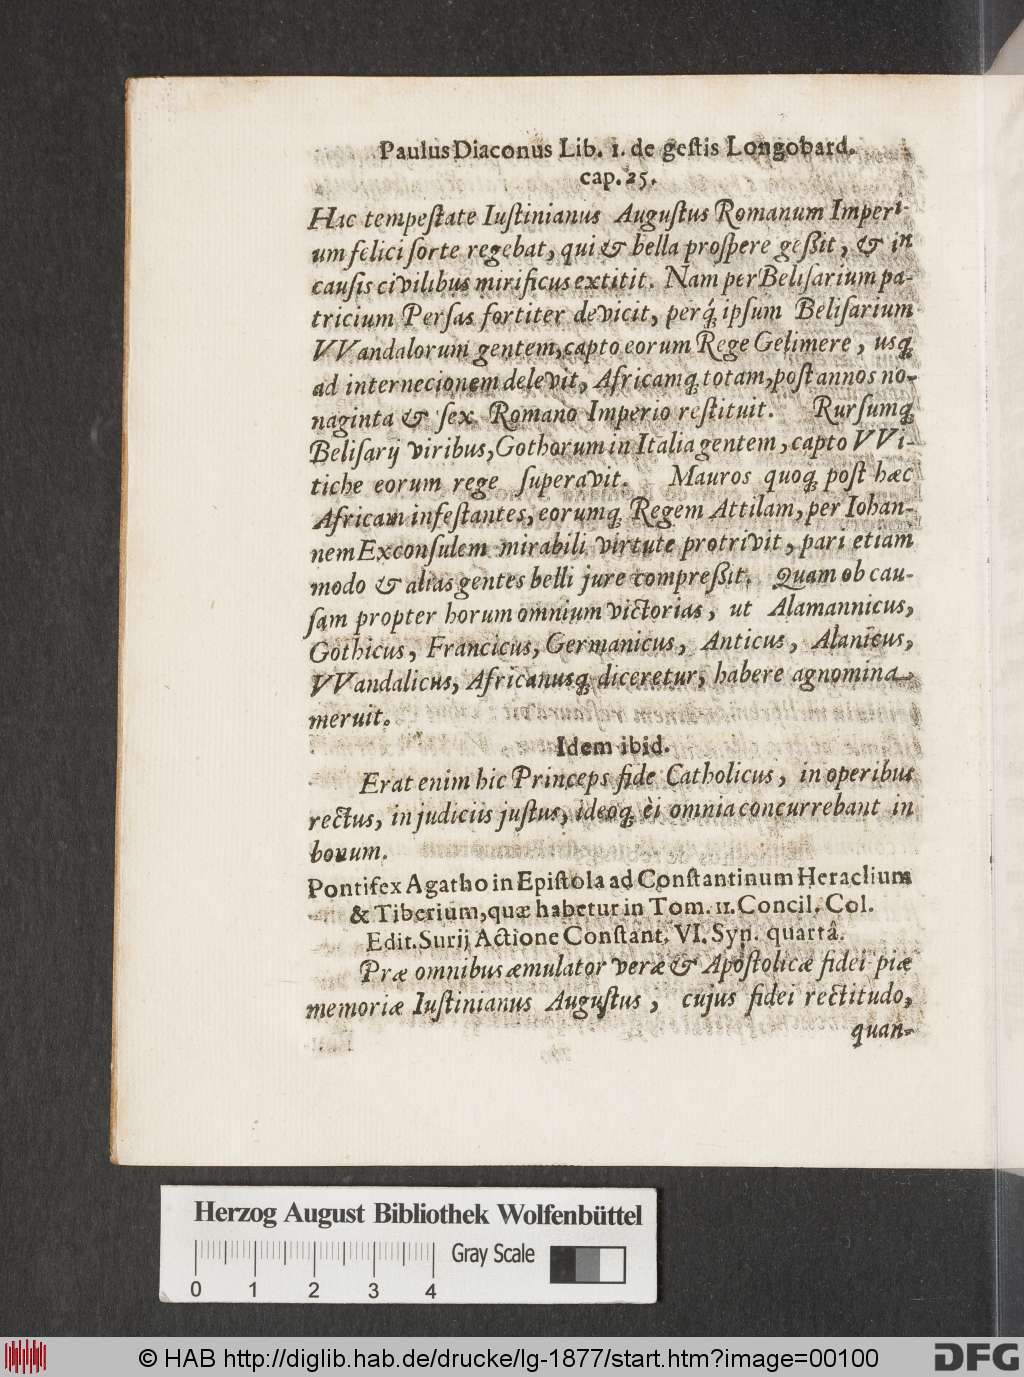 Paulus Diaconus Lib. 1. de geſtis Longobard.
cap. 25.
Hac tempeſtate Iuſtinianus Auguſtus Romanum Imperi-
um felici ſorte regebat, qui & bella proſpere geßit, & in
cauſis civilibus mirificus extitit. Nam per Beliſarium pa-
tricium Perſas fortiter devicit, perq́; ipſum Beliſarium
VVandalorum gentem, capto eorum Rege Gelimere, usq;
ad internecionem delevit, Africamq; totam, poſt annos no-
naginta & ſex Romano Imperio reſtituit. Rurſumq;
Beliſarij viribus, Gothorum in Italia gentem, capto VVi-
tiche eorum rege ſuperavit. Mauros quoq; poſt hæc
Africam infeſtantes, eorumq; Regem Attilam, per Iohan-
nem Exconſulem mirabili virtute protrivit, pari etiam
modo & alias gentes belli jure compreßit. Quam ob cau-
ſam propter horum omnium victorias, ut Alamannicus,
Gothicus, Francicus, Germanicus, Anticus, Alanicus,
VVandalicus, Africanusq; diceretur, habere agnomina
meruit.
Idem ibid.
Erat enim hic Princeps fide Catholicus, in operibus
rectus, in judiciis juſtus, ideoq; èi omnia concurrebant in
bonum.
Pontifex Agatho in Epiſtola ad Conſtantinum Heraclium
& Tiberium, quæ habetur in Tom. 11. Concil. Col.
Edit. Surij Actione Conſtant. VI. Syn. quartâ.
Præ omnibus æmulator veræ & Apoſtolicæ fidei piæ
memoriæ Iuſtinianus Auguſtus, cujus fidei rectitudo,
quan-
Herzog August Bibliothek Wolfenbüttel
Gray Scale
0 1 2 3 4
© HAB http://diglib.hab.de/drucke/lg-1877/start.htm?image=00100
DFG